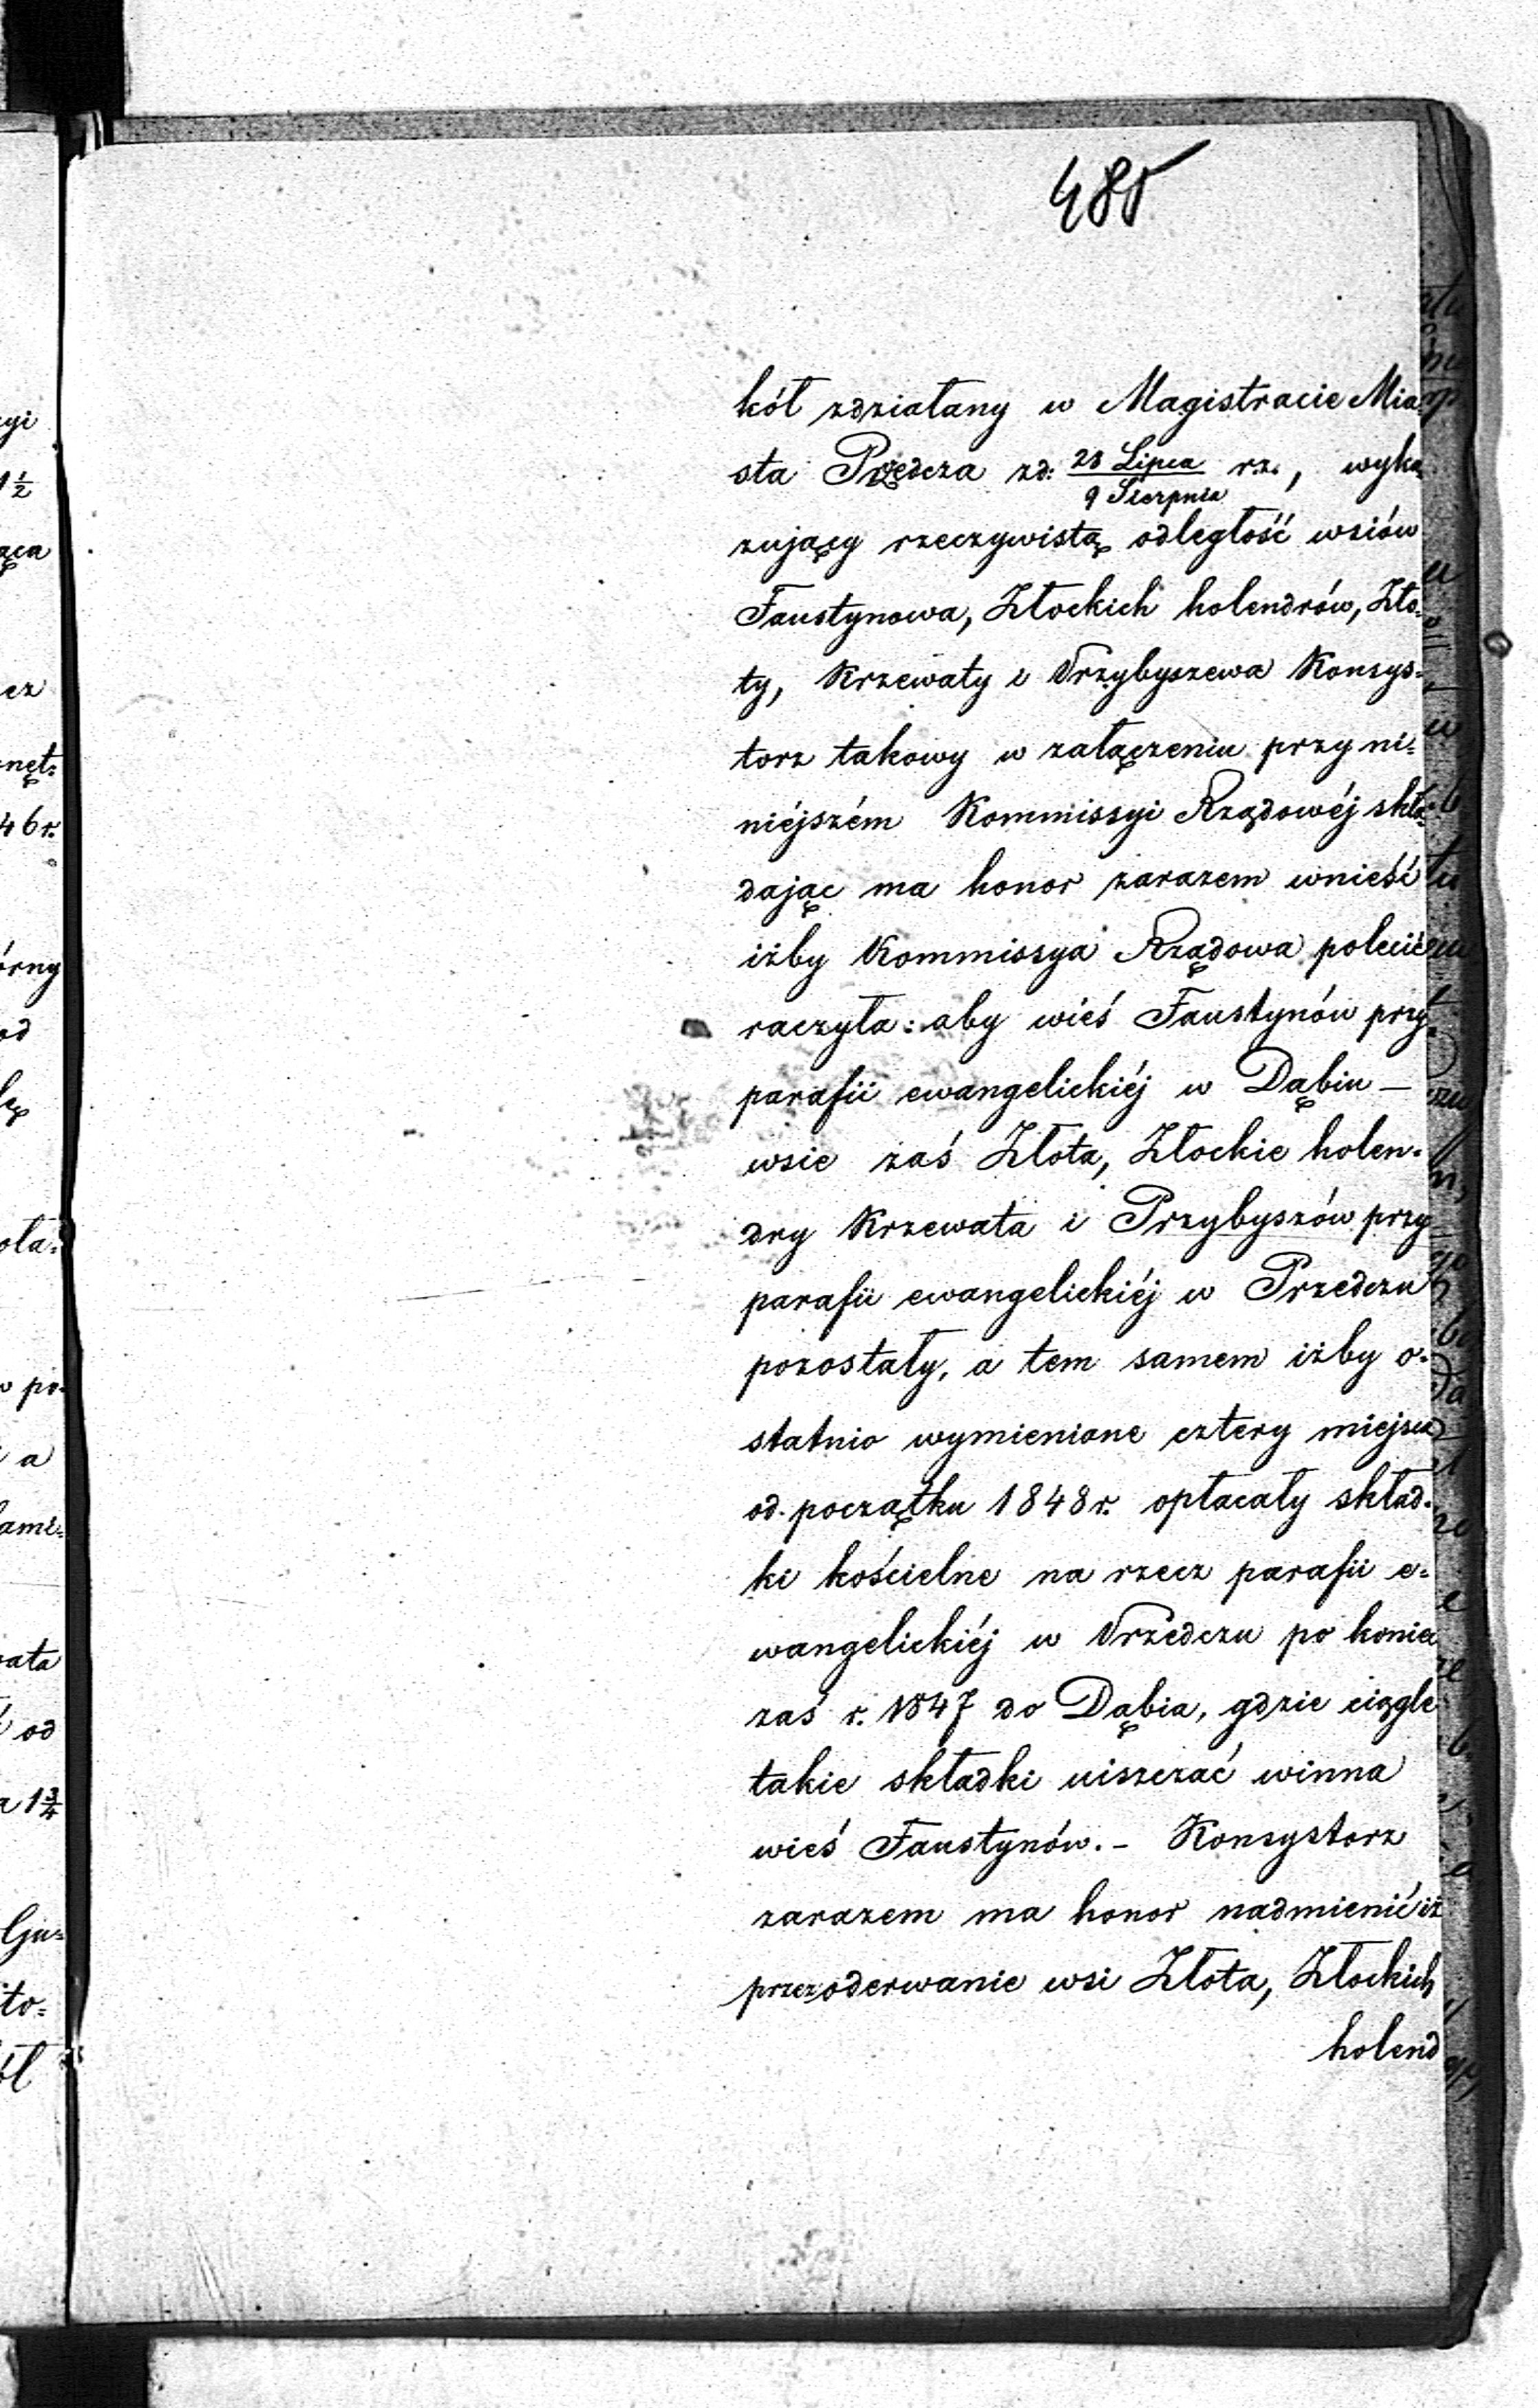 485
kół zdziałany w Magistracie Mia
sta Przedcza zd: 28 Lipca / 9 Sierpnia r.z., wyka
zujący rzeczywistą odległość wsiów
Faustynowa, Złockich holendrów, Zło-
ty, Krzewaty i Przybyszewa Konsys-
torz takowy w załączeniu przy ni-
niéjszém Kommissyi Rządowéj skła-
dając ma honor zarazem wnieść
iżby Kommissya Rządowa polecić
raczyła: aby wieś Faustynów przy
parafii ewangelickiéj w Dąbiu —
wsie zaś Złota, Złockie holen-
dry Krzewata i Przybyszów przy
parafii ewangelickiéj w Przedczu
pozostały, a tem samem iżby o-
statnio wymienione cztery miejsca
od początku 1848 r. opłacały skład-
ki kościelne na rzecz parafii e-
wangelickiéj w Przedczu po koniec
zaś r. 1847 do Dąbia, gdzie ciągle
takie składki uiszczać winna
wieś Faustynów. - Konsystorz
zarazem ma honor nadmienić iż
przez oderwanie wsi Złota, Złockich
holend